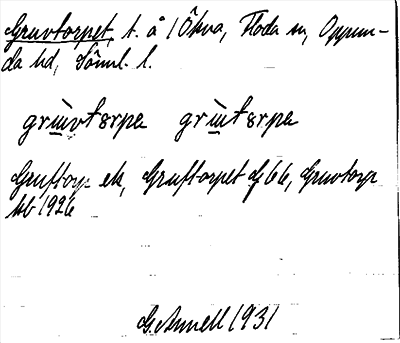 Gruvtorpet, t. å 1 Ökna, Floda sn, Oppun-
da hd, Söml. l.
grùvtɷrpe grùtɷrpe
Gruftorp ek, Gruftorpet Gf 66, Gruvtorp
hb 1926
G. Annell 1931